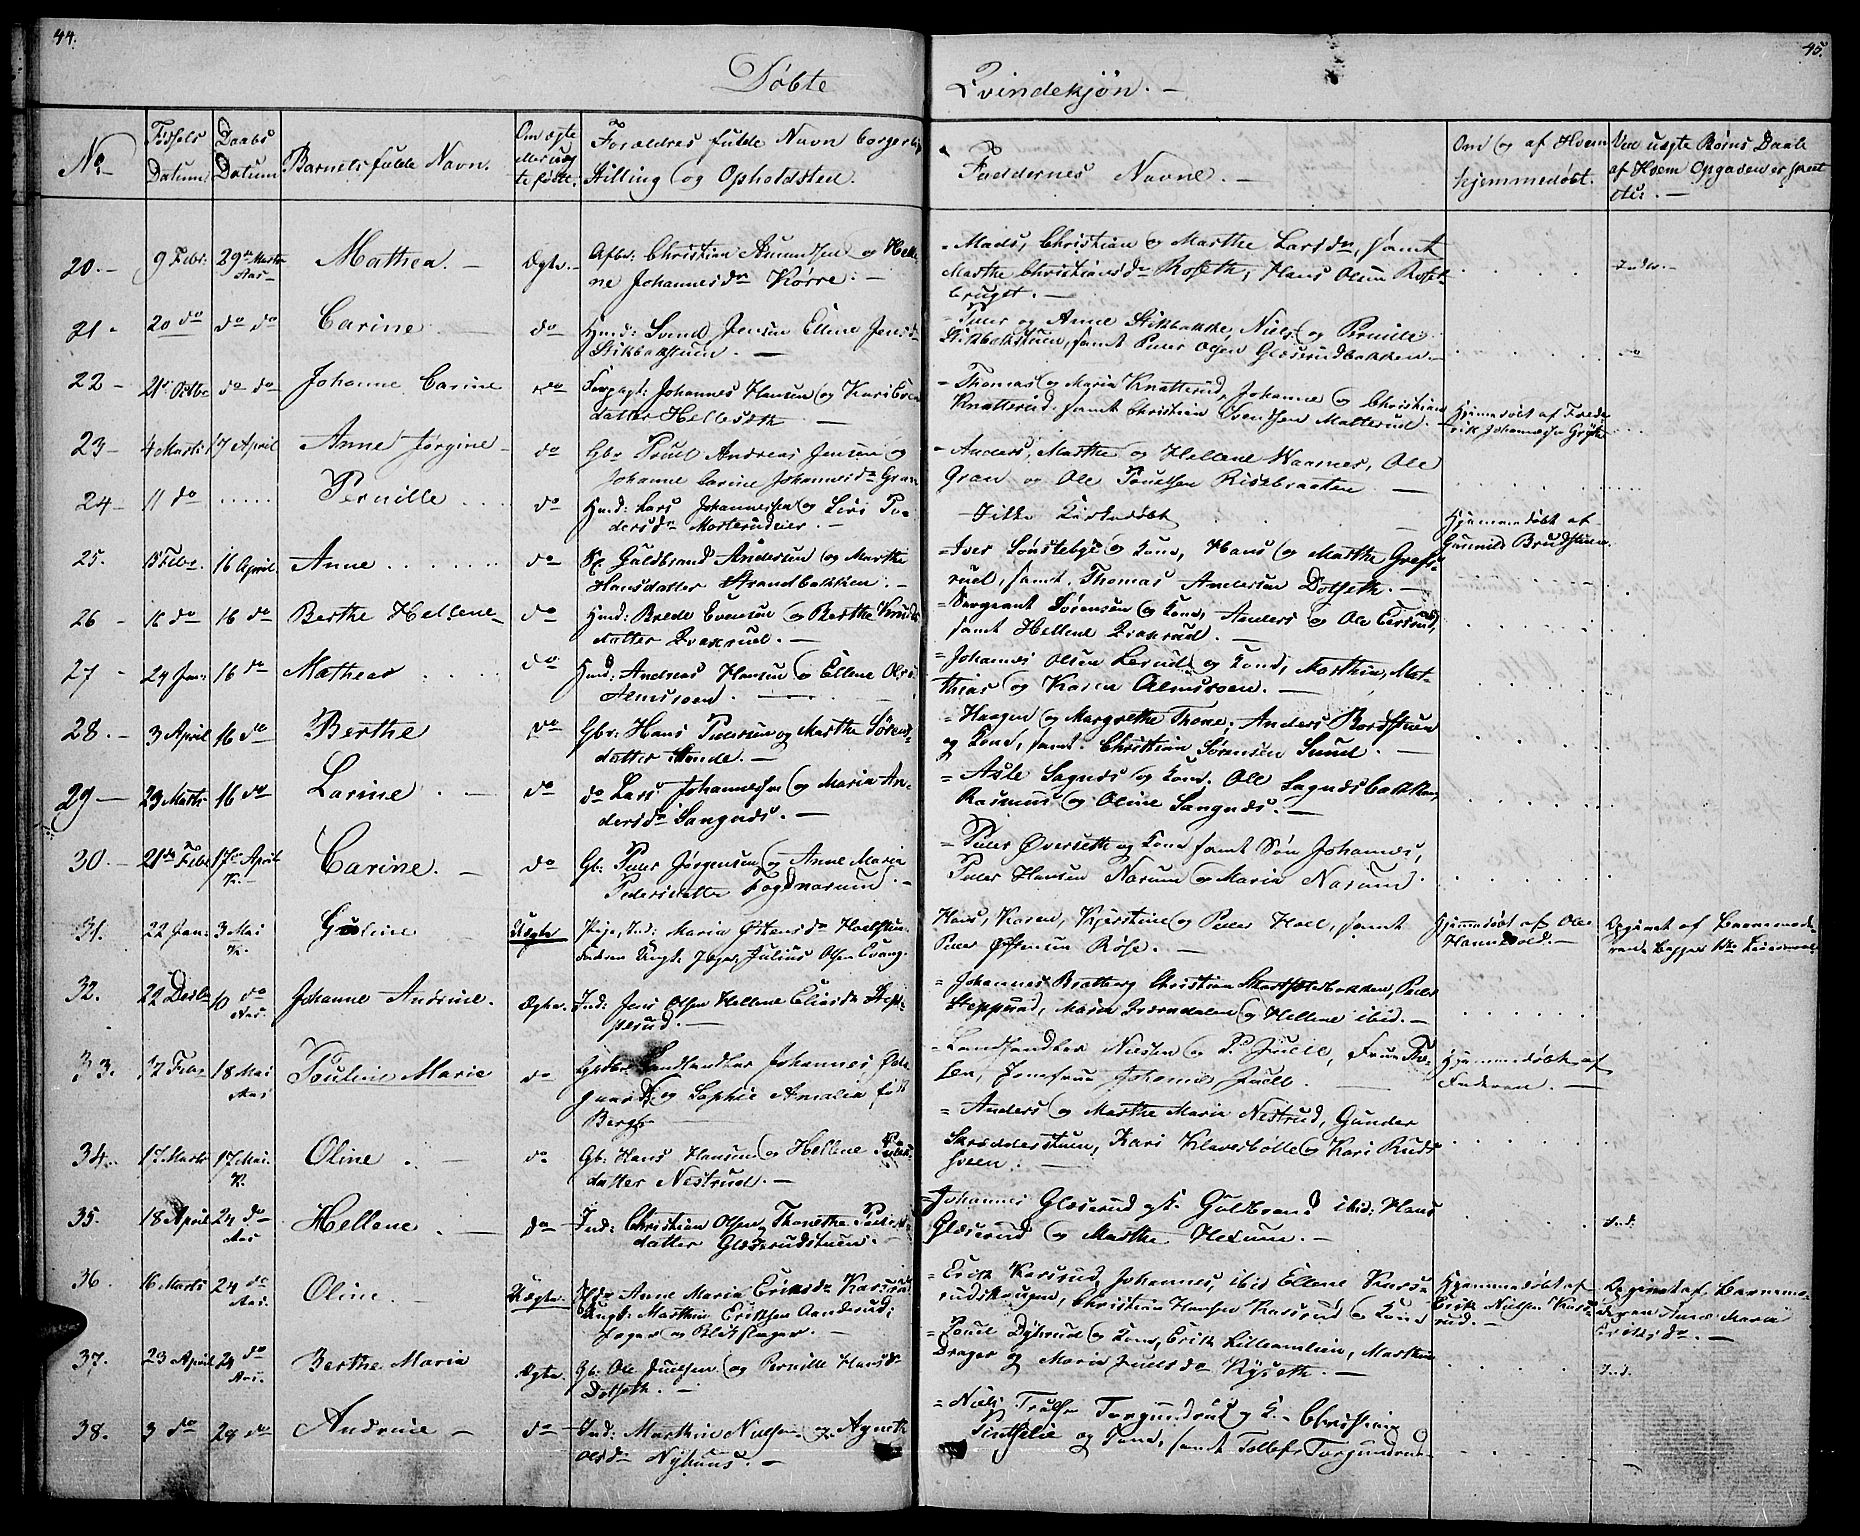 44.
45.
Døbte
Qvindekjøn. —
No
Fødsels Datum
Daabs Datum
Barnets fulde Navn.
Om ægte eller uægte fødte.
Forældres fulde Navn borgerlig Stilling og Opholdsted.
Faddernes Navne. —
Om og af Hvem hjemmedøbt.
Ved uægte Børns Daab af Hvem Opgaven er skeet
20. — 9 Febr. 29de Marts Aas — Mathea. — Ægte. — Christian Amundsen og Helene Johannesdr Kørre. —
= Mads, Christian og Marthe Larsdr, samt
Marthe Christiansdr Roseth, Hans Olsen
bruget. —
21 - 20 do do do Carine. — do Huusmd: Svend Jensen Ellene Jensdr
Stikbakstuen. —
= Peder og Anne Stikbakke, Niels og Pernille
Stikbakstuen, samt Peder Olsen Glæserudbakken. — do
22 - 21 Octbr do do Johanne Carine do Forpagt: Johannes Hansen og Kari Evens
datter Hellesæth —
= Thomas og Maria Knatterud, Johanne og Christian
Knatterud samt Christian Svendsen Matterud. —
Hjemmedøbt af Frede
rik Johannesen
23 - 4 Marts 17 April Anne Jørgine - do Gbr Poul Andreas Jensen og
Johanne Carine Johannesdr Gran
= Anders, Marthe og Hellene Naames, Ole
Gran og Ole Poulsen Risebraaten —
24 - 11 do Pernille do Huusmd: Lars Johannesen og Siri Pe-
dersdr Mosterudeier. —
— Ikke Kirkedøbt
Hjemmedøbt af
Gunnild Brudstuen.
25. 15 Febr. 16 April Anne do Guldbrand Andersen og Marthe
Hansdatter Strandbakken. —
= Iver Sønsteby og Kone, Hans og Marthe Græs-
rud, samt Thomas Andersen Dolseth. —
26 - 11 do 16 do Berthe Hellene - do Huusmd: Brede Evensen og Berthe Knuds
datter Qværnrud. —
= Sergeant Sørensen og Kone, Anders og Ole
samt Hellene —
27 - 24 Jan: 16 do Mathea do Huusmd: Andreas Hansen og Ellene Olsdr
—
= Johannes Olsen Lerud og Kone, Marthin, Mat-
thias og Karen —
28. — 3 April 16 do Berthe do Gbr: Hans Pedersen og Marthe Sørens-
datter Sunde. —
= Haagen og Margrethe Thone, Anders Bordstuen
og Kone, samt Christian Sørensen Sund. —
29 — 23 Marts 16 do Larine. — do do Lars Johannesen og Maria An-
dersdr Sangnæs. —
= Asle Sagnæs og Kone. Ole Sagnæsbakken,
Rasmus og Oline Sangnæs. —
30. — 21de Febr 17de April K. — Carine. — do Gb: Peder Jørgensen og Anne Maria
Pedersdatter Fogdnarum. —
= Peder Øverseth og Kone samt Søn Johannes,
Peder Hansen Narum og Maria Narum.
31. 22 Jan: 3 Mai K. Guline Uægte Pige, Ind: Maria Østensdr Hoelstuen
Faderen Ungk. Jæger Julius Olsen Evang.
Hans, Karen, Kjerstine og Peder Hoel, samt
Peder Østensen Røse. —
Hjemmedøbt af Ole
Hannevold. —
Opgivet af Barnemode-
ren
32. 22 Decbr 10 do Aas. Johanne Andrine. Ægte. Ind: Jens Olsen Hellene Eliasdr Step-
perud. —
= Johannes Bratberg Christian Peder
Stepperud, Maria Qværndalen og Hellene ibid. —
33. 12 Febr 18 Mai Aas Pouline Marie do Landhandler Johannes
gaard og Sophie Amalia født
Bergh —
= Landhandler Nielsen og Juell, Frue
Jomfrue Johanne, Juell. —
Hjemmedøbt af
Faderen. —
34. 17 Marts 17 Mai. K. Oline. — do Gb: Hans Hansen og Hellene Peders
datter Nestrud. —
= Anders og Marthe Maria Nestrud, Gunder
Skrædderstuen, Kari Klaverbølle og Kari Ruds
sveen. —
35. 18 April 24 do Aas Hellene. — do Ind: Christian Olsen Thorethe Peders
datter Glæserudstuen. —
= Johannes Glæserud, Guldbrand ibid: Hans
Glæserud og Marthe Hexum. —
36. 16 Marts 24 do Aas. Oline. — Uægte. Anne Maria Eriksdr Karsrud
Ungk: Marthin Eriksen Aanderud,
Jæger og —
= Erik Karsrud, Johannes, ibid Ellene Kars-
rudshaugen, Christian Hansen Karsrud og Kone
Hjemmedøbt af
Erik Nielsen Kars-
rud. —
Opgivet af Barnemo-
deren Anne Maria
Eriksdr. —
37. 23 April 24 do Aas. Berthe Maria Ægte. Gb: Ole Juelsen og Pernille Hansdr
Dolseth. —
= Poul Dyhrud og Kone, Erik Lillemlien, Marthin
Drager og Maria Juelsdr Kyseth. —
38. 3 do 24 do Andrine — do Ind: Marthin Nielsen og Agneth
Olsdr Nyhuus. —
= Niels Truls Torgundrud og K. Christian
og Kone, samt Tollef Torgundrud